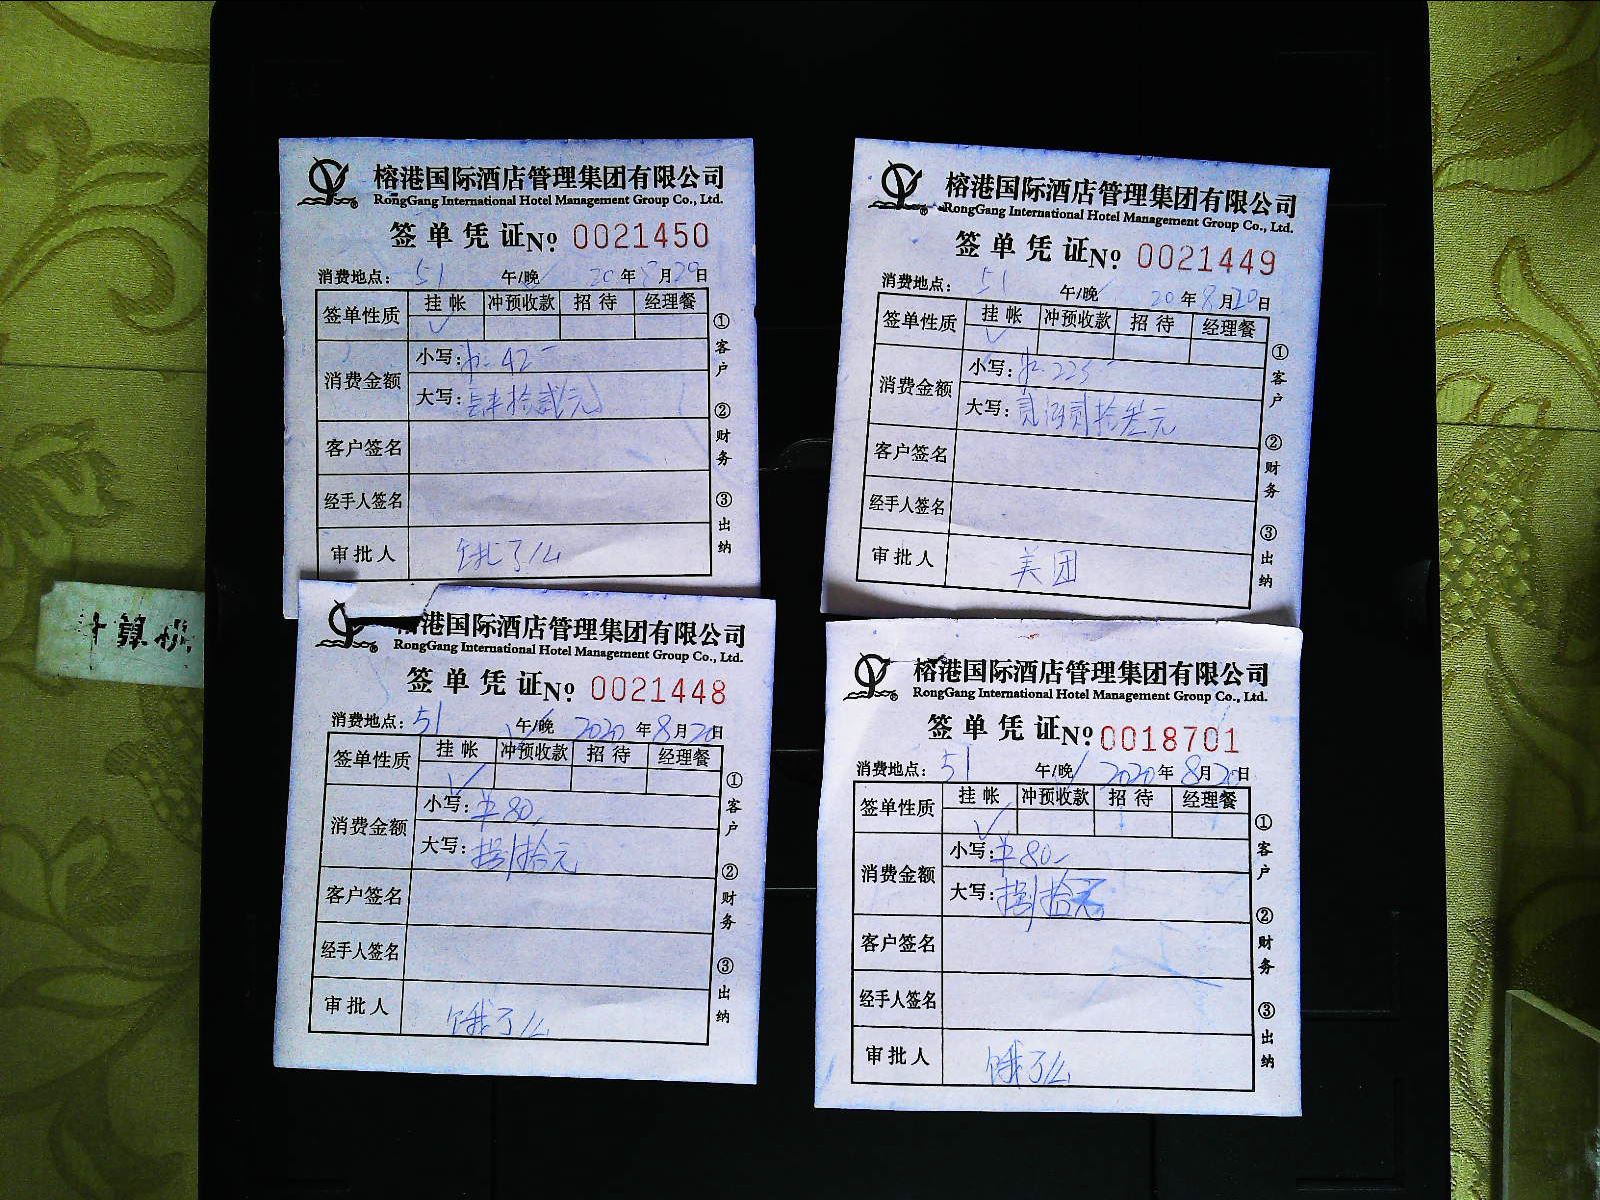 榕港国际酒店管理集团有限公司
RongGang International Hotel Management Group Co., Ltd.
签单凭证No. 0021450
消费地点: 51 午/晚 20年8月20日
签单性质 挂帐 冲预收款 招待 经理餐
✓
消费金额 小写: 42-
大写: 肆拾贰元
客户签名
经手人签名
审批人 饿了么
①客户 ②财务 ③出纳
榕港国际酒店管理集团有限公司
RongGang International Hotel Management Group Co., Ltd.
签单凭证No. 0021449
消费地点: 51 午/晚 20年8月20日
签单性质 挂帐 冲预收款 招待 经理餐
✓
消费金额 小写:
大写: 贰佰贰拾叁元
客户签名
经手人签名
审批人 美团
①客户 ②财务 ③出纳
榕港国际酒店管理集团有限公司
RongGang International Hotel Management Group Co., Ltd.
签单凭证No. 0021448
消费地点: 51 午/晚 2020年8月20日
签单性质 挂帐 冲预收款 招待 经理餐
✓
消费金额 小写: 半80-
大写: 捌拾元
客户签名
经手人签名
审批人 饿了么
①客户 ②财务 ③出纳
榕港国际酒店管理集团有限公司
RongGang International Hotel Management Group Co., Ltd.
签单凭证No. 0018701
消费地点: 51 午/晚 2020年8月20日
签单性质 挂帐 冲预收款 招待 经理餐
✓
消费金额 小写: 半80-
大写: 捌拾元
客户签名
经手人签名
审批人 饿了么
①客户 ②财务 ③出纳
计算机